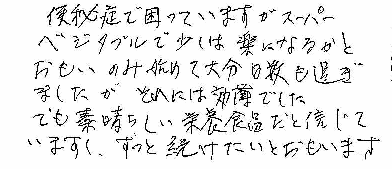 便秘症で困っていますがスーパー
ベジタブルで少しは楽になるかと
おもい のみ始めて大分日数も過ぎ
ましたが それには効薄でした
でも素晴らしい栄養食品だと信じて
いますし、ずっと続けたいとおもいます